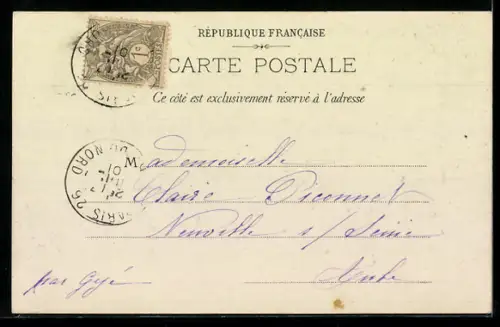 RÉPUBLIQUE FRANÇAISE
CARTE POSTALE
Ce côté est exclusivement réservé à l'adresse
Mademoiselle
Claire
Neuville s/ Seine
Aube
par Gyé
PARIS 26
DU NORD